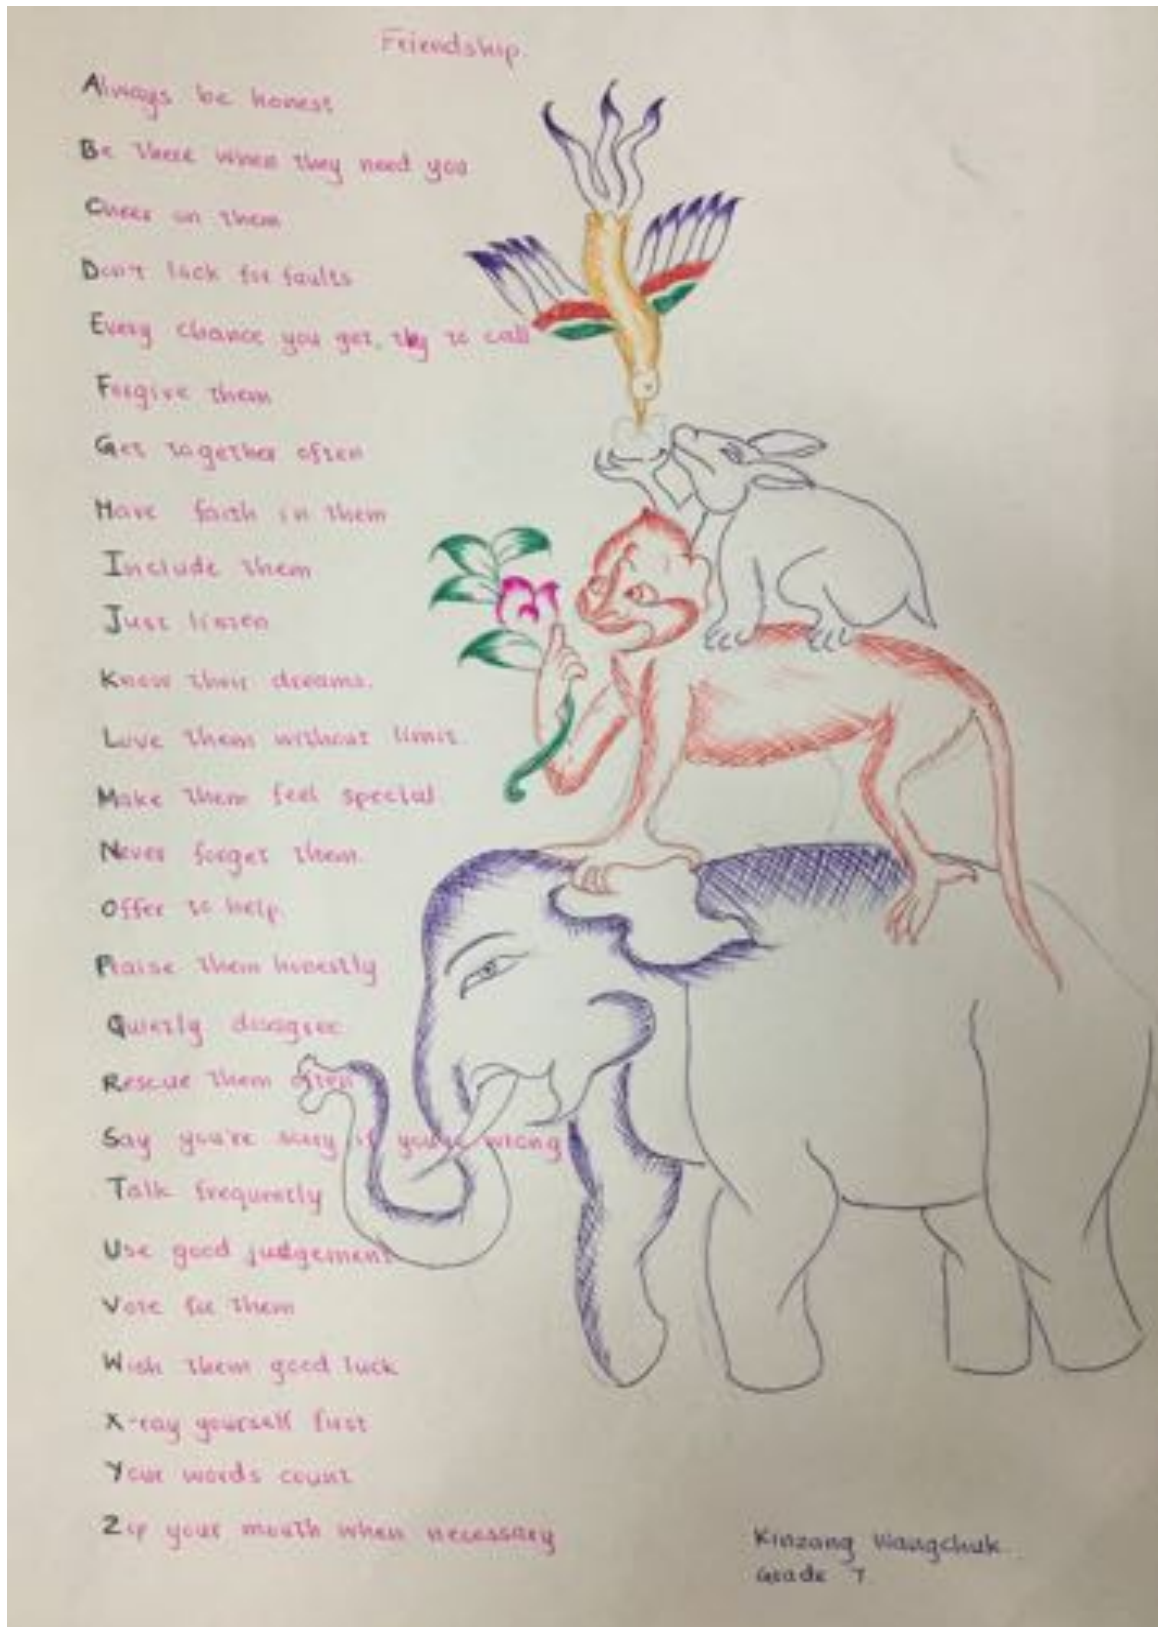 Friendship.
Always be honest
Be there when they need you
Cheer on them
Don't look for faults
Every chance you get, try to call
Forgive them
Get together often
Have faith in them
Include them
Just listen
Know their dreams.
Love them without limit.
Make them feel special
Never forget them.
Offer to help.
Praise them honestly
Quietly disagree
Rescue them often
Say you're sorry if you're wrong
Talk frequently
Use good judgement
Vote for them
Wish them good luck
X-ray yourself first
Your words count
Zip your mouth when necessary
Kinzang Wangchuk
Grade 7